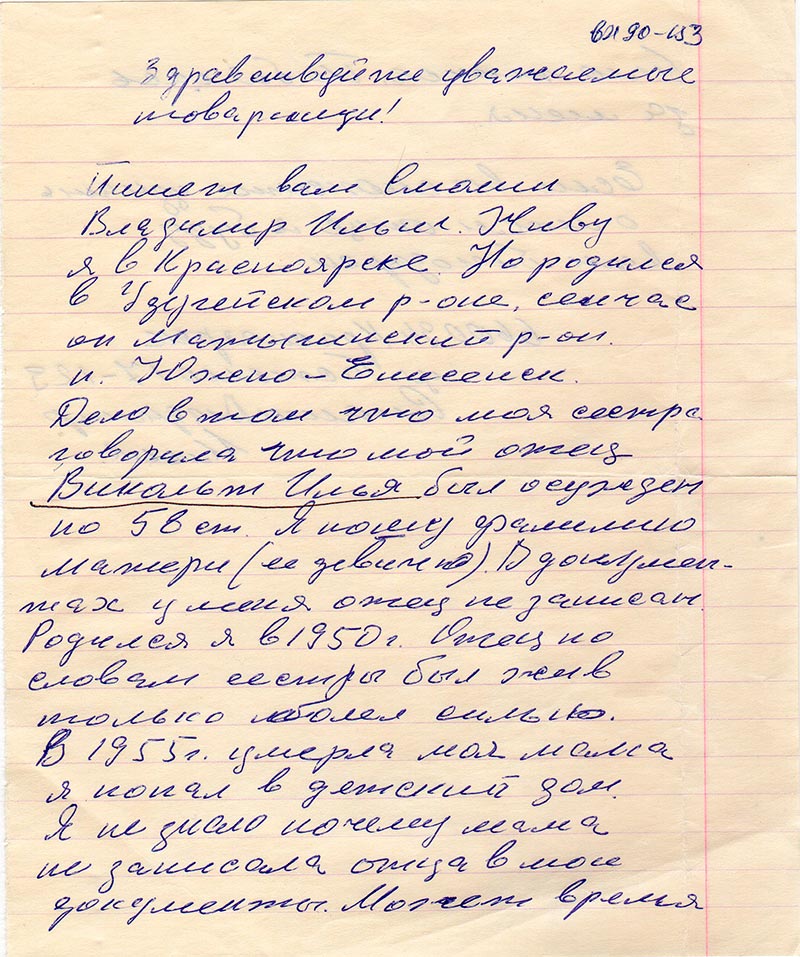 вх 90-153
Здравствуйте уважаемые
товарищи!
Пишет вам Смолин
Владимир Ильич. Живу
я в Красноярске. Но родился
в Удерейском р-оне, сейчас
он Матыгинский р-он.
п. Южно-Енисейск.
Дело в том что моя сестра
говорила что мой отец
Викольт Илья был осужден
по 58 ст. Я ношу фамилию
матери (ее девичью). В докумен-
тах у меня отец не записан.
Родился я в 1950 г. Отец по
словам сестры был жив
только болел сильно.
В 1955 г. умерла моя мама
я попал в детский дом.
Я не знаю почему мама
не записала отца в мои
документы. Может время